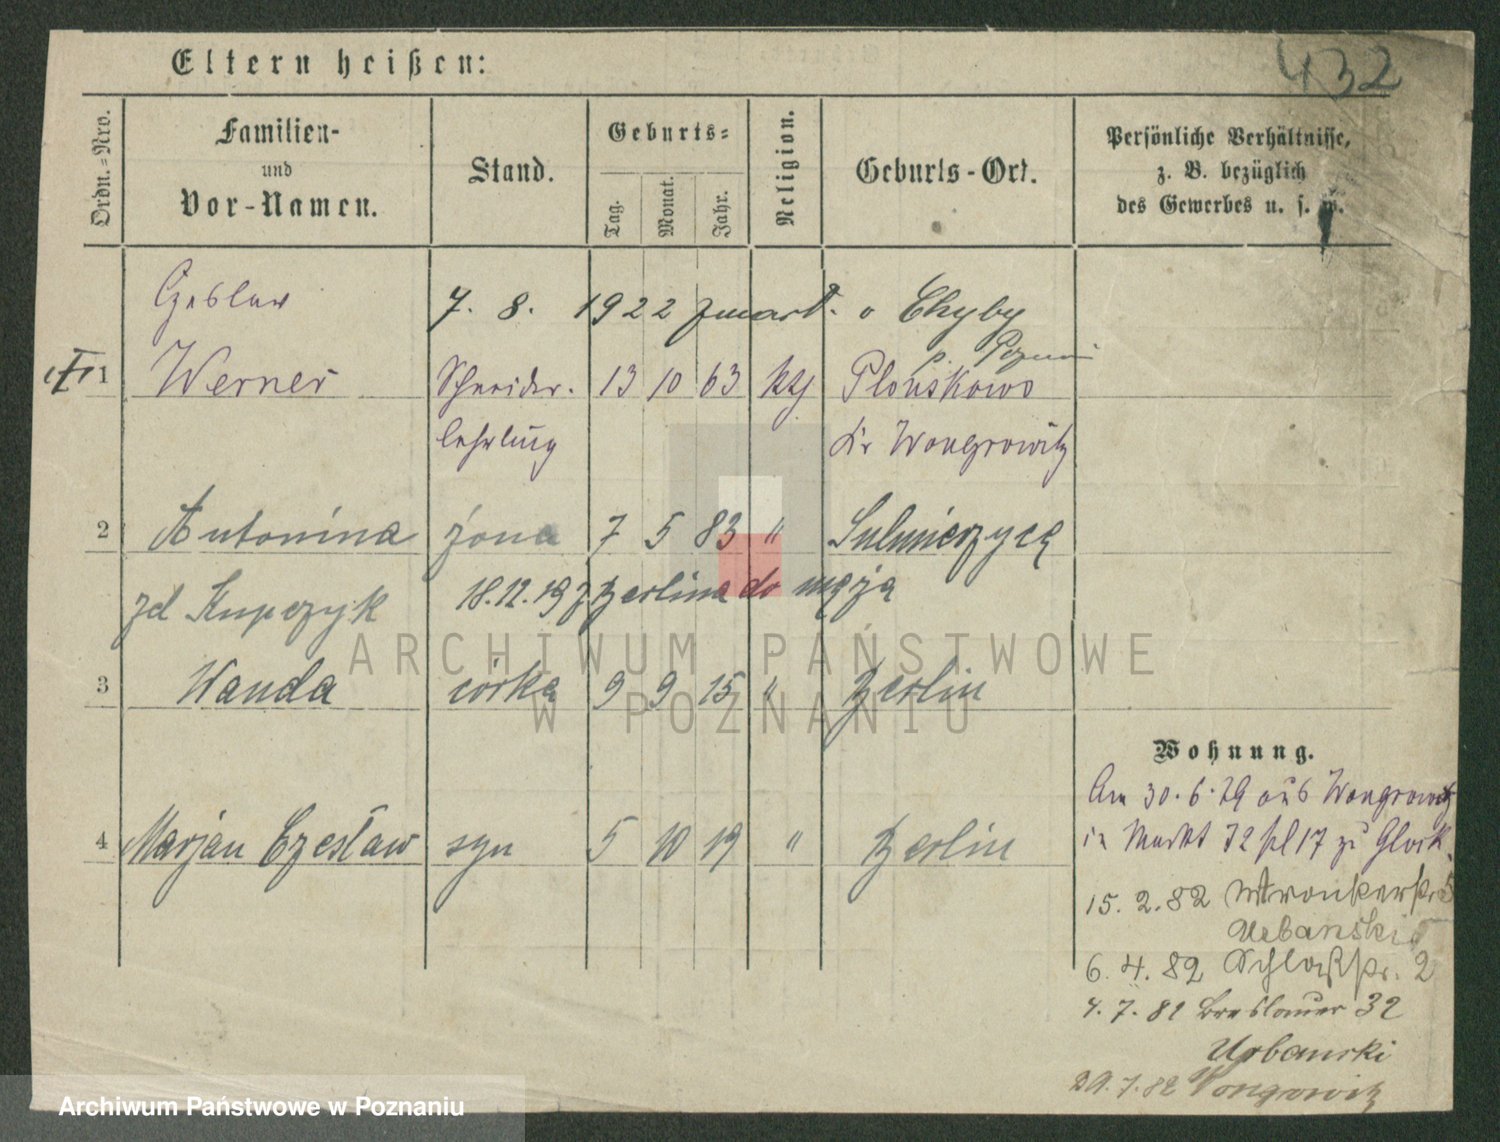 432
Eltern heißen:
Ordn.-Nro.
Familien-
und
Vor-Namen.
Stand.
Geburts-
Tag.
Monat.
Jahr.
Religion.
Geburts-Ort.
Persönliche Verhältnisse,
z. B. bezüglich
des Gewerbes u. s. w.
Czeslaw
7. 8. 1922 zmarł. o Chyby
p. Poznań
1 Werner Schneider- 13 10 63 kth Plonskowo
lehrling Kr Wongrowitz
2 Antonina żona 7 5 83 " Sulmierzycą
zd Kupczyk 18.12.19 z Berlina do męża
3 Wanda córka 9 9 15 " Berlin
4 Marjan Czesław syn 5 10 19 " Berlin
Wohnung.
Am 30.6.79 aus Wongrowitz
in Markt 72 bei 17 zu
15. 2. 82 Wronkerstr. 5
Urbanski
6. 4. 82 Schloßstr. 2
4. 7. 82 Breslauer 32
Urbanski
29. 7. 82 Wongrowitz
ARCHIWUM PAŃSTWOWE
W POZNANIU
Archiwum Państwowe w Poznaniu